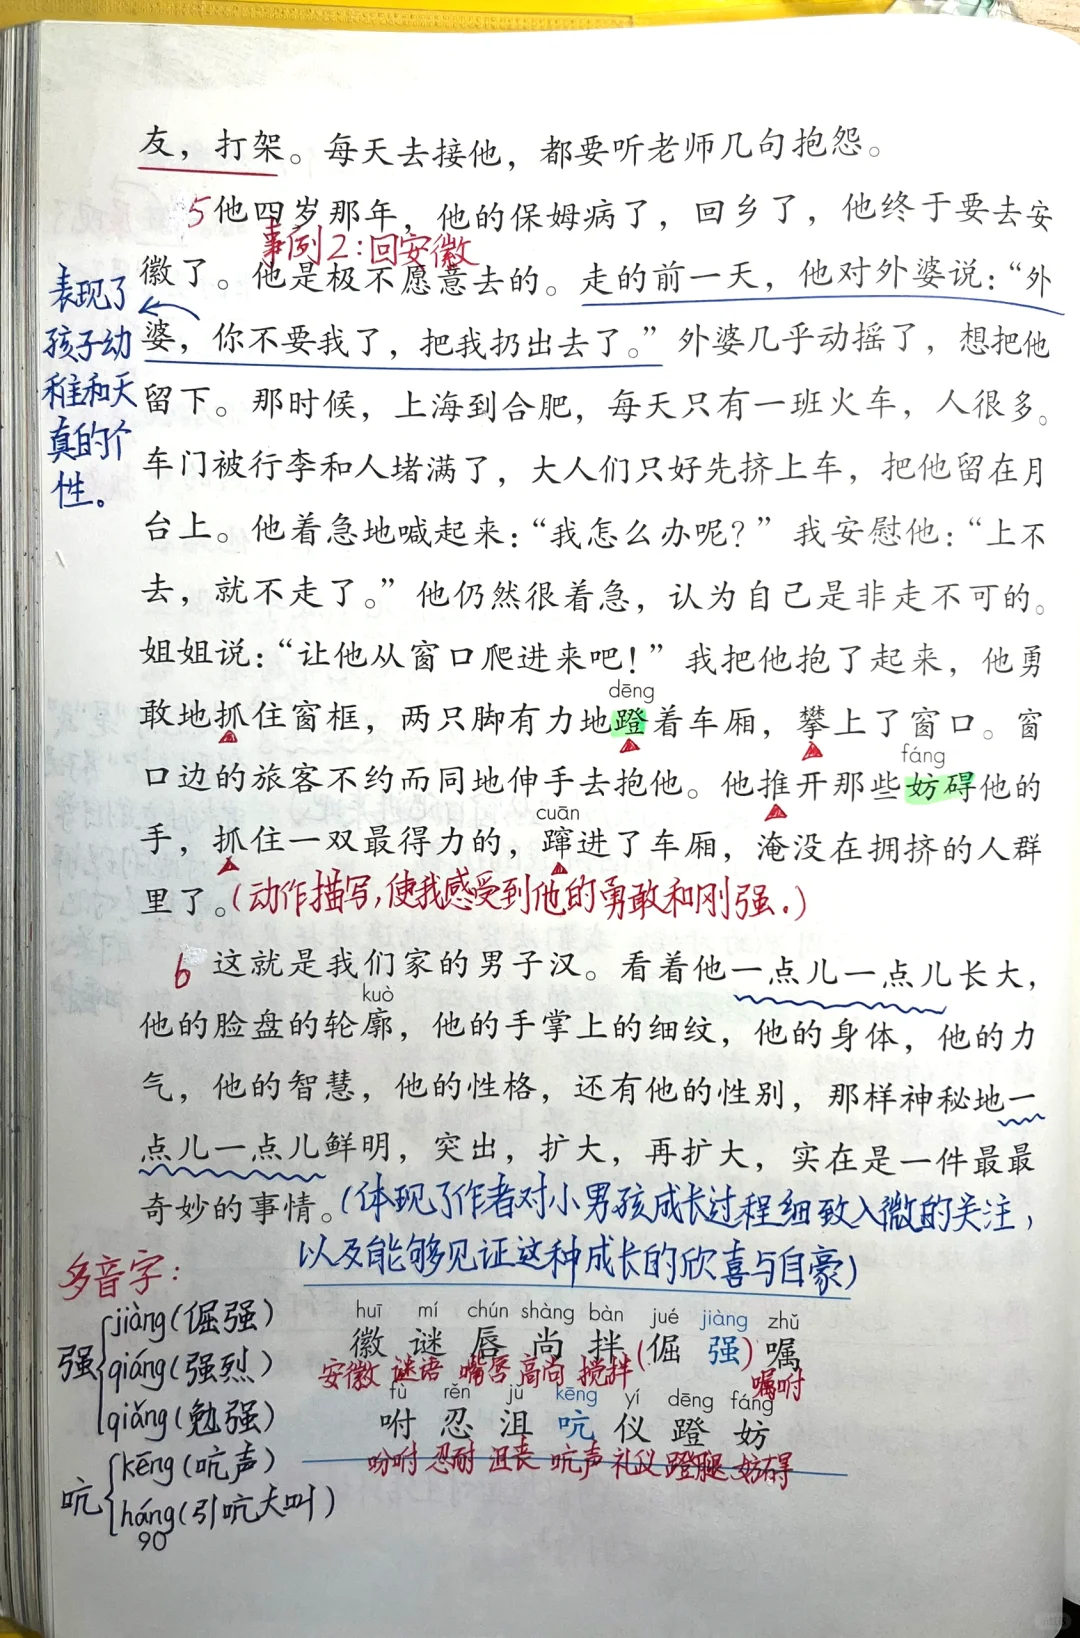 友，打架。每天去接他，都要听老师几句抱怨。
5他四岁那年，他的保姆病了，回乡了，他终于要去安
事例2：回安徽
徽了。他是极不愿意去的。走的前一天，他对外婆说：“外
婆，你不要我了，把我扔出去了。”外婆几乎动摇了，想把他
表现了
孩子幼
稚和天
真的个
性。
留下。那时候，上海到合肥，每天只有一班火车，人很多。
车门被行李和人堵满了，大人们只好先挤上车，把他留在月
台上。他着急地喊起来：“我怎么办呢？”我安慰他：“上不
去，就不走了。”他仍然很着急，认为自己是非走不可的。
姐姐说：“让他从窗口爬进来吧！”我把他抱了起来，他勇
dēng
敢地抓住窗框，两只脚有力地蹬着车厢，攀上了窗口。窗
fáng
口边的旅客不约而同地伸手去抱他。他推开那些妨碍他的
cuān
手，抓住一双最得力的，蹿进了车厢，淹没在拥挤的人群
里了。（动作描写，使我感受到他的勇敢和刚强.）
6 这就是我们家的男子汉。看着他一点儿一点儿长大，
kuò
他的脸盘的轮廓，他的手掌上的细纹，他的身体，他的力
气，他的智慧，他的性格，还有他的性别，那样神秘地一
点儿一点儿鲜明，突出，扩大，再扩大，实在是一件最最
奇妙的事情。（体现了作者对小男孩成长过程细致入微的关注，
以及能够见证这种成长的欣喜与自豪）
多音字：
强
jiàng（倔强）
qiáng（强烈）
qiǎng（勉强）
吭
kēng（吭声）
háng（引吭大叫）
huī mí chún shàng bàn jué jiàng zhǔ
徽 谜 唇 尚 拌（倔 强）嘱
安徽 谜语 嘴唇 高尚 搅拌 嘱咐
fù rěn jǔ kēng yí dēng fáng
咐 忍 沮 吭 仪 蹬 妨
吩咐 忍耐 沮丧 吭声 礼仪 蹬腿 妨碍
90